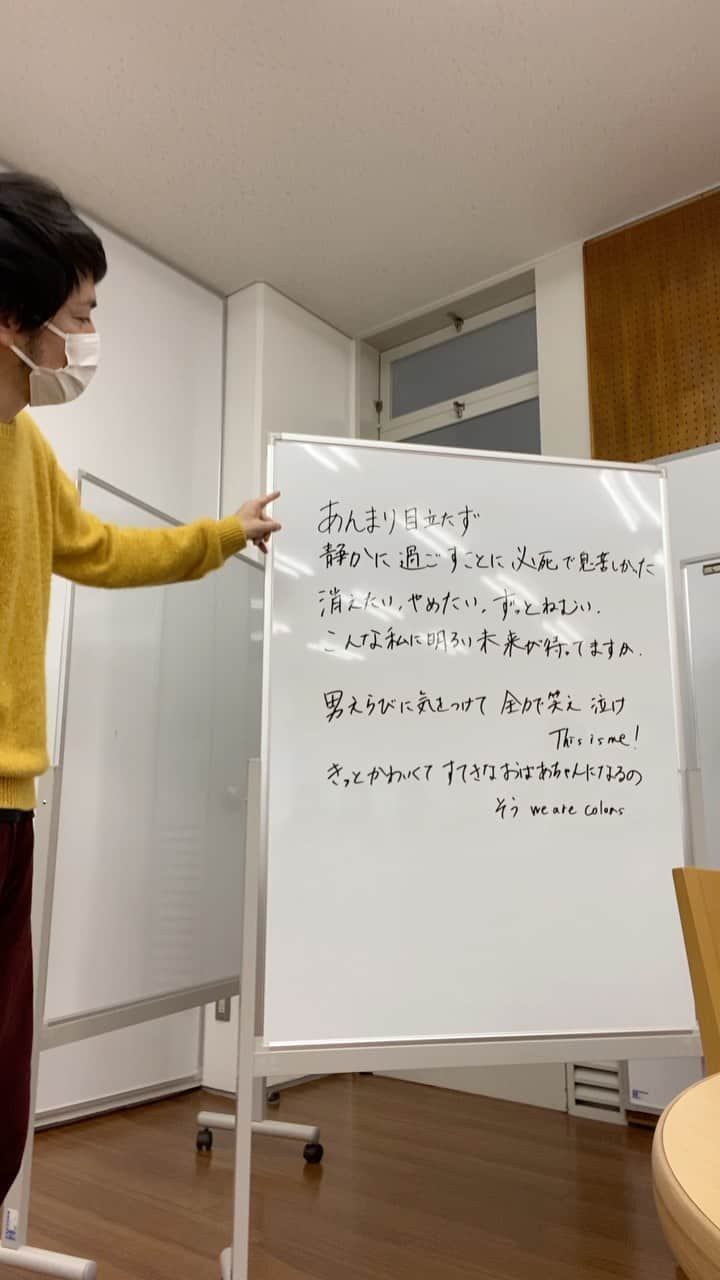 あんまり目立たず
静かに過ごすことに必死で息苦しかった
消えたい,やめたい,ずっとねむい.
こんな私に明るい未来が待ってますか.
男えらびに気をつけて 全力で笑え 泣け
This is me!
きっとかわいくて すてきなおばあちゃんになるの
そう we are colors